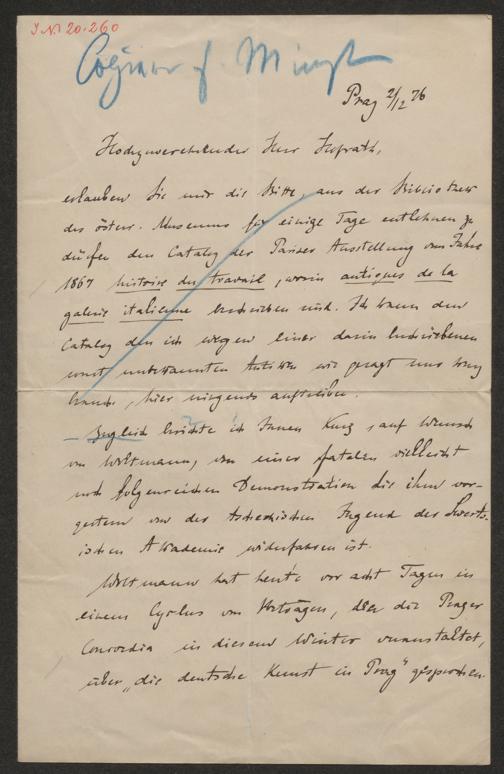 J.N. 20.260
Prag 2/12 76
Hochzuverehrender Herr Hofrath,
erlauben Sie mir die Bitte, aus der Bibliothek
des österr. Museums für einige Tage entlehnen zu
dürfen den Catalog der Pariser Ausstellung vom Jahre
1867 histoire du travail, worin antiques de la
galerie italienne beschrieben sind. Ich kann den
Catalog den ich wegen einer darin beschriebenen
sonst unbekannten Antike wie gesagt nur kurz
brauche, hier nirgends auftreiben.
– Zugleich berichte ich Ihnen kurz, auf Wunsch
von Woltmann, von einer fatalen vielleicht
noch folgenreichen Demonstration die ihm vor-
gestern von der tschechischen Jugend der
ischen Akademie widerfahren ist.
Woltmann hat heute vor acht Tagen in
einem Cyclus von Vorträgen, den die Prager
Concordia in diesem Winter veranstaltet,
über „die deutsche Kunst in Prag" gesprochen.